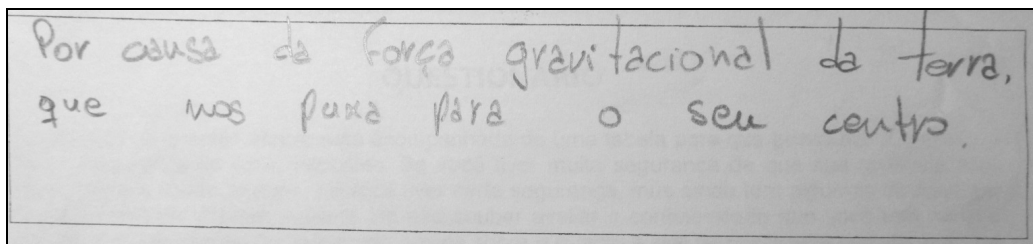 Por causa da força gravitacional da terra,
que nos puxa para o seu centro.